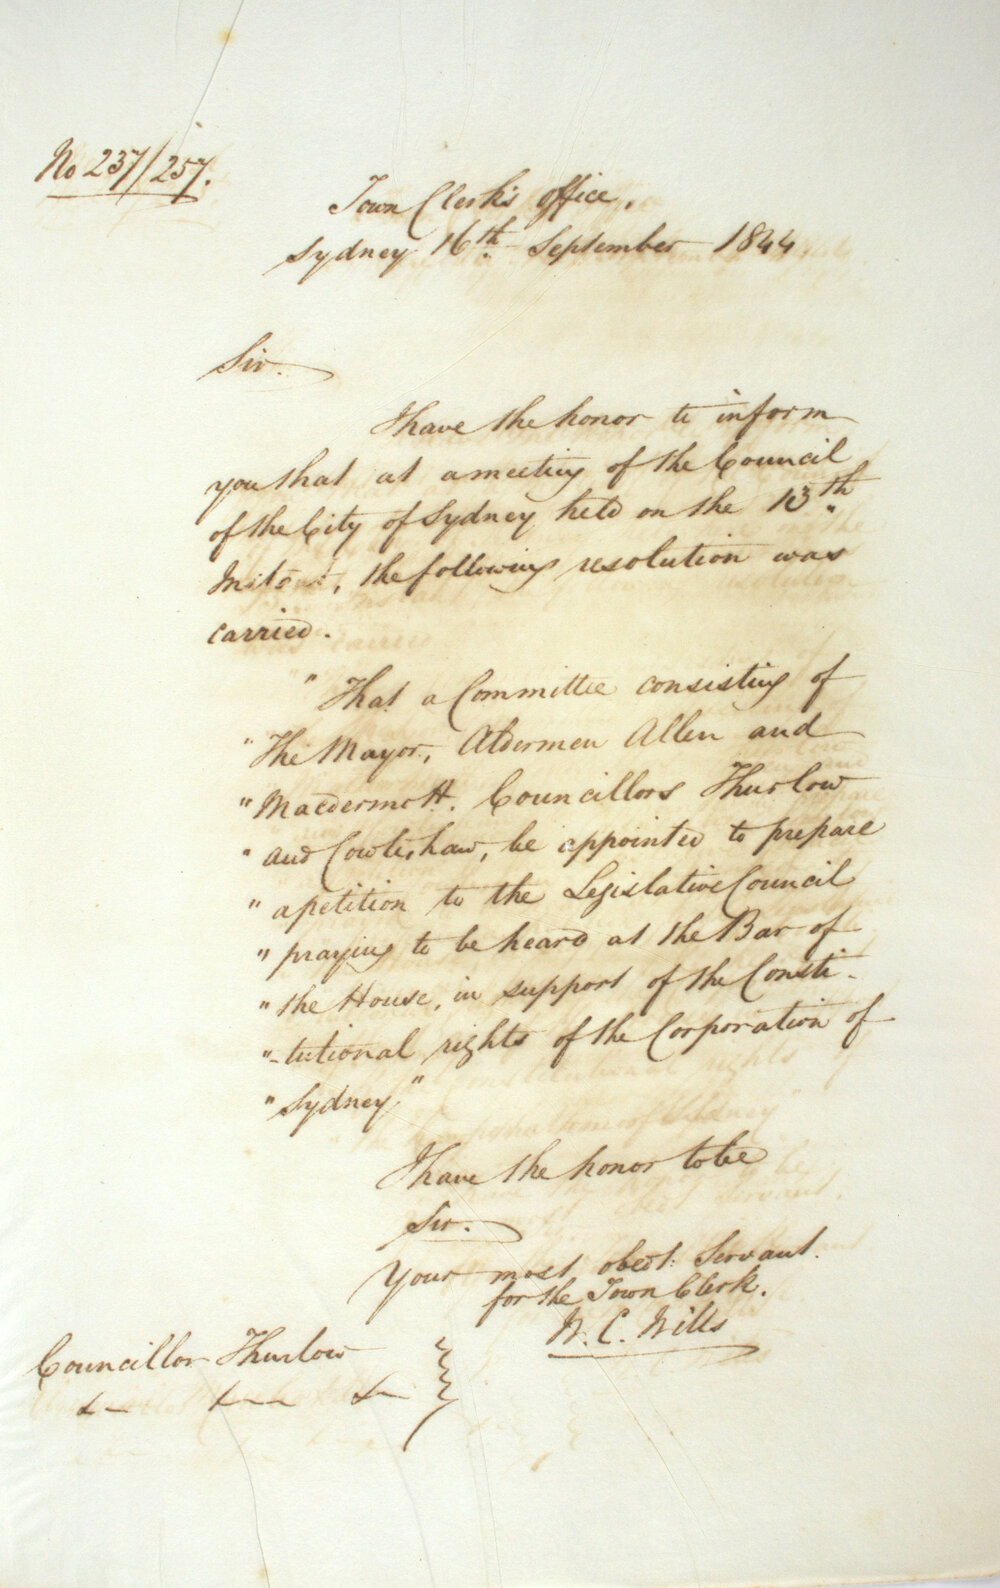 No 237/257.
Town Clerk's Office,
Sydney 16th September 1844,
Sir.
I have the honor to inform
you that at a meeting of the Council
of the City of Sydney held on the 13th
Instant, the following resolution was
carried.
"That a Committee consisting of
"The Mayor, Aldermen Allen and
"Macdermott. Councillors Thurlow
"and Cowlishaw, be appointed to prepare
"a petition to the Legislative Council
"praying to be heard at the Bar of
"the House, in support of the Consti-
"-tutional rights of the Corporation of
"Sydney"
I have the honor to be
Sir.
Your most obedt: Servant.
for the Town Clerk.
W. C. Wills
Councillor Thurlow